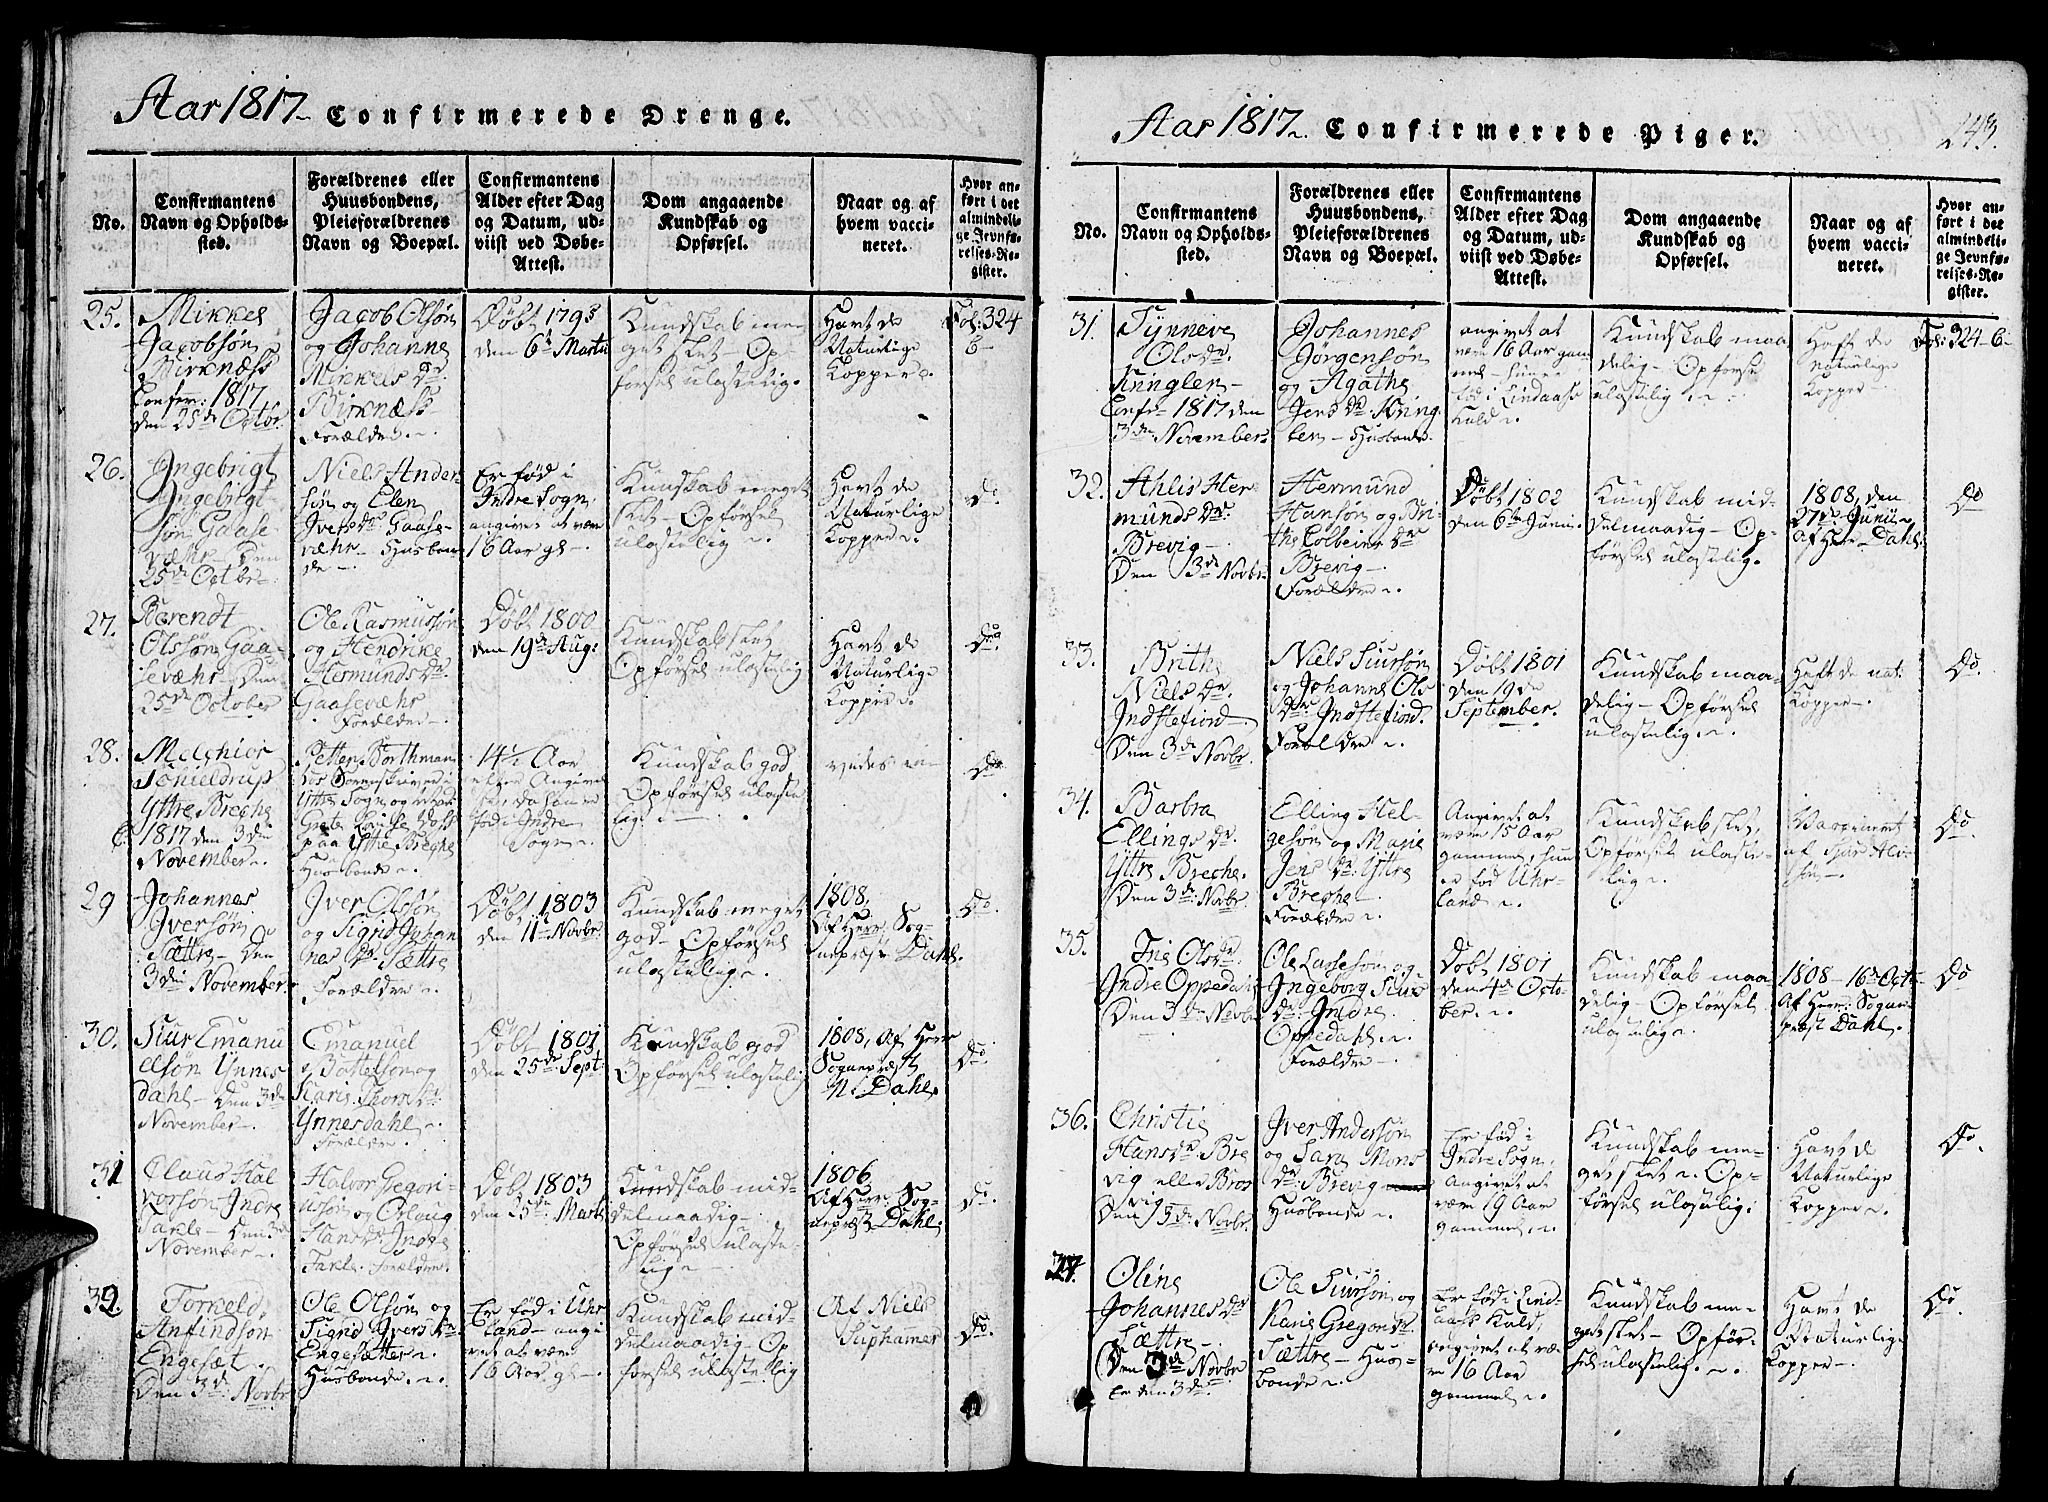 Aar 1817 Confirmerede Drenge.
No.
Confirmantens
Navn og Opholds-
sted.
Forældrenes eller
Huusbondens,
Pleieforældrenes
Navn og Boepæl.
Confirmantens
Alder efter Dag
og Datum, ud-
viist ved Døbe-
Attest.
Dom angaaende
Kundskab og
Opførsel.
Naar og af
hvem vacci-
neret.
Hvor an-
ført i det
almindeli-
ge Jevnfø-
relses-Re-
gister.
25.
Mikkel
Jacobsøn
Birknæss
Confir: 1817
den 25de Octbr.
Jacob Olsøn
og Johanne
Mikkels Dr.
Birknæss
Forældre
Døbt 1795
den 6te Martii
Kundskab me-
get slet - Op-
førsel ulastelig.
Havt de
Naturlige
Kopper
Fol: 324
b
26.
Ingebrigt
Ingebrigt-
søn Gaase-
væhr Den
25de Octbr
Niels Ander-
søn og Elen
Ivers Dr. Gaase-
væhr Husbon-
de
Er fød i
Indre Sogn
angivet at være
16 Aar gl
Kundskab meget
slet - Opførsel
ulastelig
Havt de
Naturlige
Kopper
Do
27.
Berendt
Olsøn Gaa-
sevæhr Den
25de October
Ole Rasmussøn
og Hendrike
Hermunds Dr.
Gaasevæhr
Forældre
Døbt 1800
den 19de Aug:
Kundskab slet
Opførsel ulastelig
Havt de
Naturlige
Kopper
Do
28.
Melchior
Schieldrup
Yttre Breche
1817 den 3die
November
Petter Borthman
Sorenskriver i
Yttre Sogn og
Grete Lovise Dass
paa Yttre Breche
Husbonde
14½ Aar
efter Angivelse
da han er
fød i Indre
Sogn
Kundskab god
Opførsel ulaste
lig
Do
29
Johannes
Iversøn
Sættre Den
3die November
Iver Olsøn
og Sigrid Johan
nes Dr. Sættre
Forældre
Døbt 1803
den 11te Novbr.
Kundskab meget
god - Opførsel
ulastelig
1808,
Af Herr Sog-
nepræst Dahl.
Do.
30.
Siur Emanu
elsøn Ynnes
dahl - Den 3de
November
Emanuel
Bottelsøn og
Karis Thora Dr.
Ynnesdahl
Forældre
Døbt 1801
den 25de Sept:
Kundskab god
Opførsel ulastelig
1808, Af Herr
Sognepræst
N. Dahl.
Do.
31
Claus Hal
vorsøn Indre
Takle Den 3de
November
Halvor Gregori-
ussøn og Orlaug
Hans Dr. Indre
Takle Forældre
Døbt 1803
den 25de Martii
Kundskab mid-
delmaadig
Opførsel ulaste-
lig
1806
Af Herr Sog-
nepræst Dahl.
Do.
32.
Tormeld
Anfindsøn
Engesæt
Den 3de Novbr
Ole Olsøn og
Sigrid Ivers Dr.
Engesætter
Husbonde
Er fød i Uhr
land - angi
vet at være
16 Aar gl
Kundskab mid-
delmaadig - Op
førsel ulastelig
Af Niels
Suphamer
Do.
Aar 1817 Confirmerede Piger.
243.
No.
Confirmantens
Navn og Opholds-
sted.
Forældrenes eller
Huusbondens,
Pleieforældrenes
Navn og Boepæl.
Confirmantens
Alder efter Dag
og Datum, ud-
viist ved Døbe-
Attest.
Dom angaaende
Kundskab og
Opførsel.
Naar og af
hvem vacci-
neret.
Hvor an-
ført i det
almindeli-
ge Jevnfø-
relses-Re-
gister.
31.
Synneve
Ols Dr.
Confir 1817 den
3die November
Johannes
Jørgensøn
og Agathe
Jens Dr. Kring-
len - Husbonde
angivet at
være 16 Aar gam
mel - hun er
fød i Lindaase
Kald
Kundskab maa
delig - Opførsel
ulastelig
Haft de
naturlige
Kopper
Fol: 324 b
32.
Ahlis Her-
munds Dr.
Brevig
Den 3de Novbr
Hermund
Hansøn og Bri-
the Colbeins Dr
Brevig
Forældre
Døbt 1802
den 6te Junii
Kundskab mid-
delmaadig - Op-
førsel ulastelig.
1808, den
27de Junii
af Herr Dahl.
Do
33.
Brithe
Niels Dr.
Indstefiord
Den 3de Novbr
Niels Siursøn
og Johanne Ols
Dr. Indstefiord.
Forældre
Døbt 1801
den 19de
September.
Kundskab maa-
delig - Opførsel
ulastelig
Haft de nat:
Kopper
Do.
34.
Barbra
Ellings Dr.
Yttre Breche.
Den 3de Novbr
Elling Hel-
gesøn og Marie
Jens Dr. Yttre
Breche
Forældre
Angivet at
være 15 Aar
gammel, hun
er fød Uhr-
land
Kundskab slet,
Opførsel ulaste-
lig
Vaccineret
af
Do
35.
Ols Dr.
Indre Oppedahl
Den 3de Novbr
Ole Lassesøn og
Ingeborg Siurs
Dr. Indre
Oppedahl
Forældre
Døbt 1801
den 4de Octo-
ber.
Kundskab maa
delig - Opførsel
ulastelig
1808 - 16de Octo
Af Herr Sogne
præst Dahl.
Do
36.
Christie
Hans Dr. Bre
vig eller Bros
vig
Den 3de Novbr
Iver Andersøn
og Sara Mons
Dr. Brevig
Husbonde
Er fød i
Indre Sogn,
Angivet at
være 19 Aar
gammel
Kundskab me-
get slet - Op-
førsel ulastelig
Havt de
Naturlige
Kopper
Do.
37.
Oline
Johannes Dr
Sættre
Den 3de Novbr
Er den 3de
Ole Siursøn og
Karis Gregori Dr.
Sættre - Hus-
bonde
Er fød i Lind-
aase Kald,
angivet at væ-
re 16 Aar
gammel
Kundskab me-
get slet - Opfør-
sel ulastelig
Havt de
Naturlige
Kopper
Do